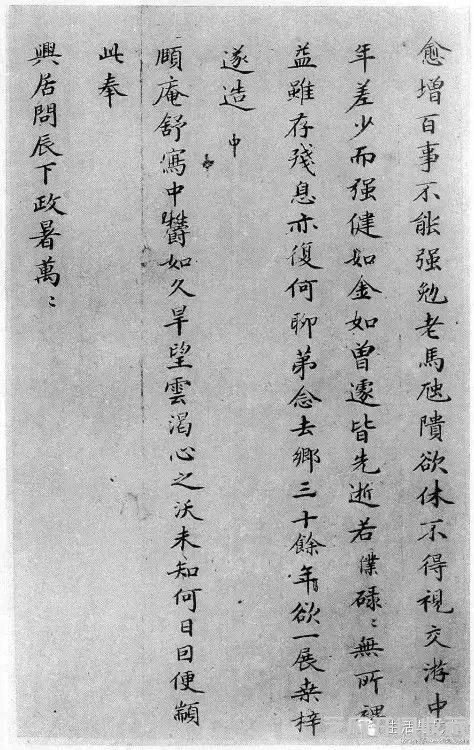 愈增百事不能強勉老馬虺隤欲休不得視交游中
年差少而强健如金如曾遽皆先逝若僕碌〻無所裨
益雖存殘息亦復何聊第念去鄉三十餘年欲一展桑梓
遂造
中
頤庵舒寫中欝如久旱望雲渴心之沃未知何日因便顓
此奉
興居問辰下政暑萬〻
生活